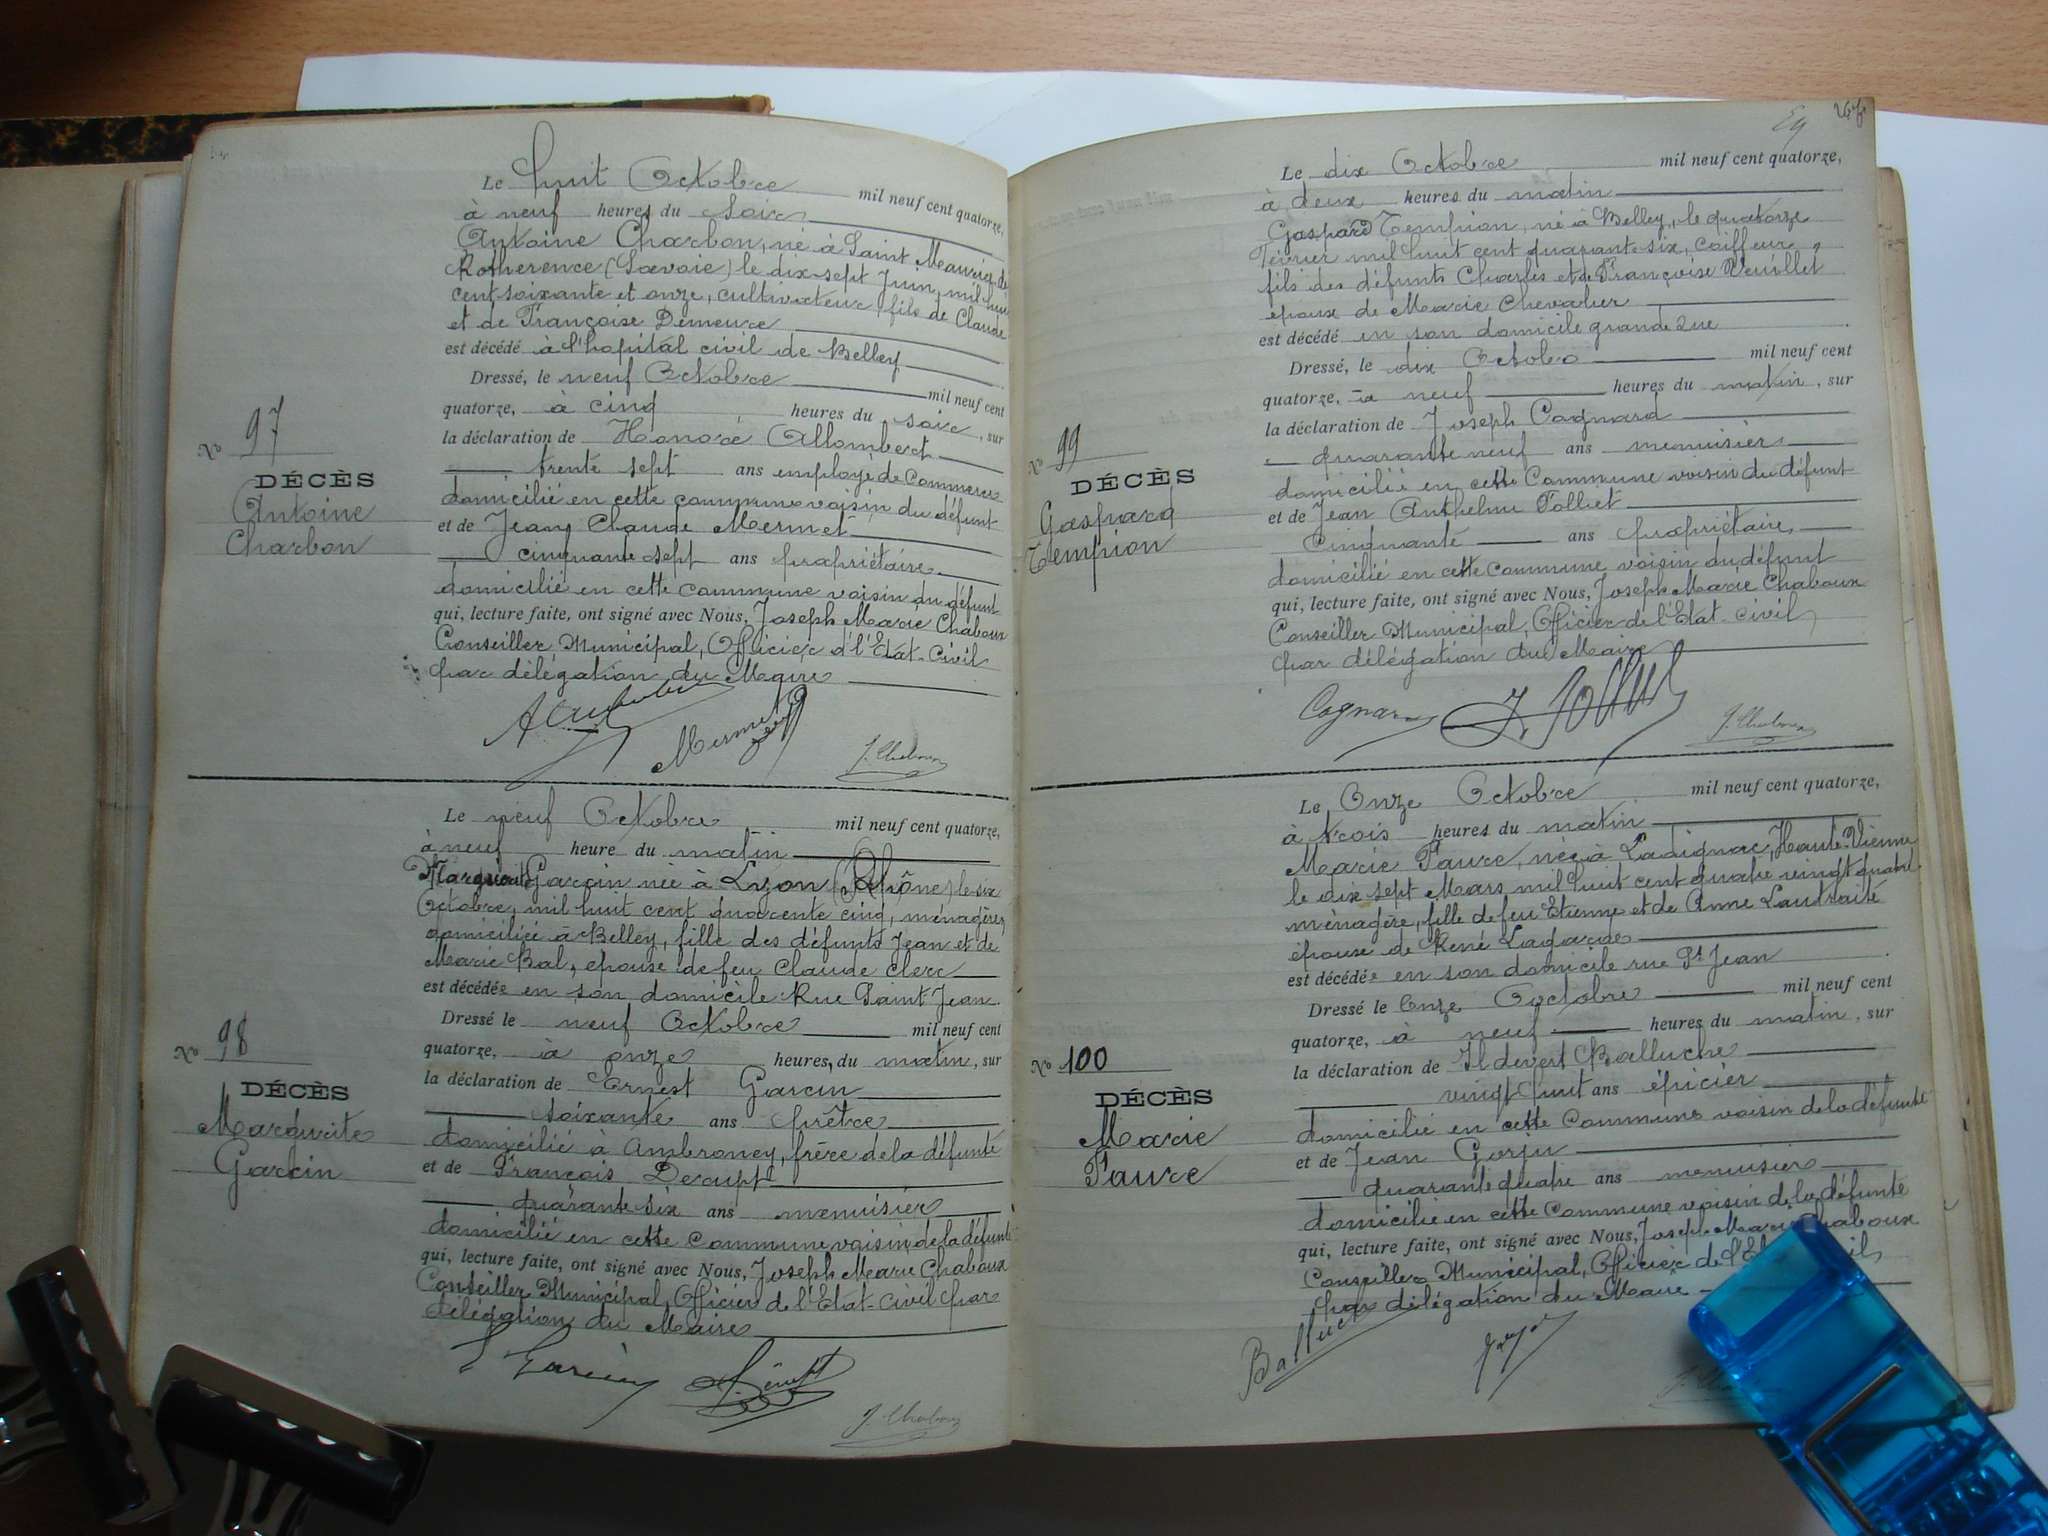 Le huit Octobre mil neuf cent quatorze,
à neuf heures du soir
Antoine Charbon, né à Saint Maurice de
Rotherence (Savoie) le dix-sept Juin mil huit
cent soixante et onze, cultivateur, fils de Claude
et de Françoise Demeure
est décédé à l'hopital civil de Belley
Dressé, le neuf Octobre mil neuf cent
quatorze, à cinq heures du soir, sur
la déclaration de Honoré Allombert
trente sept ans employé de Commerce
domicilié en cette commune voisin du défunt
et de Jean Claude Mermet
cinquante sept ans propriétaire
domicilié en cette commune voisin du défunt
qui, lecture faite, ont signé avec Nous, Joseph Marie Chaboux
Conseiller Municipal, Officier d'l'Etat-Civil
par délégation du Maire
Mermet J. Chaboux
N° 97
DÉCÈS
Antoine
Charbon
Le neuf Octobre mil neuf cent quatorze,
à neuf heure du matin
Marguerite Garcin née à Lyon (Rhône) le six
Octobre, mil huit cent quarente cinq, ménagère,
domiciliée à Belley, fille des défunts Jean et de
Marie Bal, épouse de feu Claude Clerc
est décédée en son domicile Rue Saint Jean
Dressé le neuf Octobre mil neuf cent
quatorze, à onze heures, du matin, sur
la déclaration de Ernest Garcin
soixante ans prêtre
domicilié à Ambroney, frère de la défunte
et de François Decrupt
quarante six ans menuisier
domicilié en cette Commune voisin de la défunte
qui, lecture faite, ont signé avec Nous, Joseph Marie Chaboux
Conseiller Municipal, Officier de l'Etat-Civil par
délégation du Maire
E Garcin J. Chaboux
N° 98
DÉCÈS
Marguerite
Garcin
267
Le dix Octobre mil neuf cent quatorze,
à deux heures du matin
Gaspard Tempion, né à Belley, le quatorze
Février mil huit cent quarante-six, coiffeur,
fils des défunts Charles et de Françoise Veuillet
époux de Marie Chevalier
est décédé en son domicile grande rue
Dressé, le dix Octobre mil neuf cent
quatorze, à neuf heures du matin, sur
la déclaration de Joseph Cognard
quarante neuf ans menuisier
domicilié en cette Commune voisin du défunt
et de Jean Anthelme Folliet
Cinquante ans propriétaire,
domicilié en cette commune voisin du défunt
qui, lecture faite, ont signé avec Nous, Joseph Marie Chaboux
Conseiller Municipal, Officier de l'Etat-Civil,
par délégation du Maire
Cognard J. Chaboux
N° 99
DÉCÈS
Gaspard
Tempion
Le Onze Octobre mil neuf cent quatorze,
à trois heures du matin
Marie Faure, née à Ladignac, Haute-Vienne
le dix sept Mars mil huit cent quatre vingt quatre
ménagère, fille de feu Etienne et de Anne Lautraité
épouse de René Lagarde
est décédée en son domicile rue St Jean
Dressé le Onze Octobre mil neuf cent
quatorze, à neuf heures du matin, sur
la déclaration de Ildevert Balluche
vingt huit ans épicier
domicilié en cette Commune voisin de la défunte
et de Jean Gorju
quarante quatre ans menuisier
domicilié en cette Commune voisin de la défunte
qui, lecture faite, ont signé avec Nous, Joseph Marie Chaboux
Conseiller Municipal, Officier de l'Etat-Civil,
par délégation du Maire
N° 100
DÉCÈS
Marie
Faure